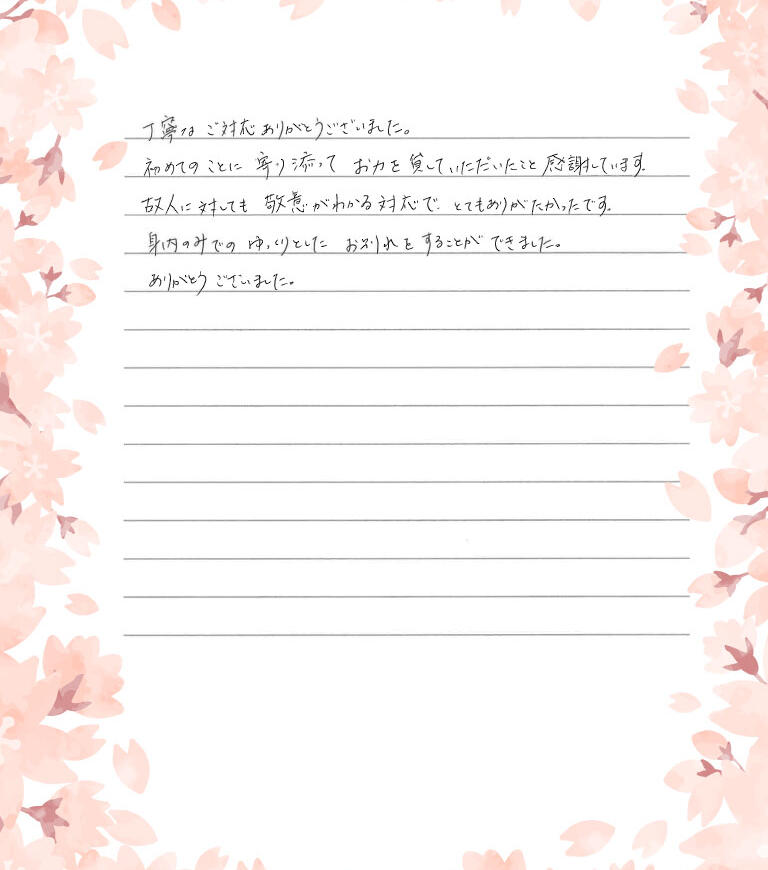 丁寧なご対応ありがとうございました。
初めてのことに寄り添って お力を貸していただいたこと感謝しています。
故人に対しても 敬意がわかる対応で、とてもありがたかったです。
身内のみでの ゆっくりとした お別れをすることが できました。
ありがとうございました。